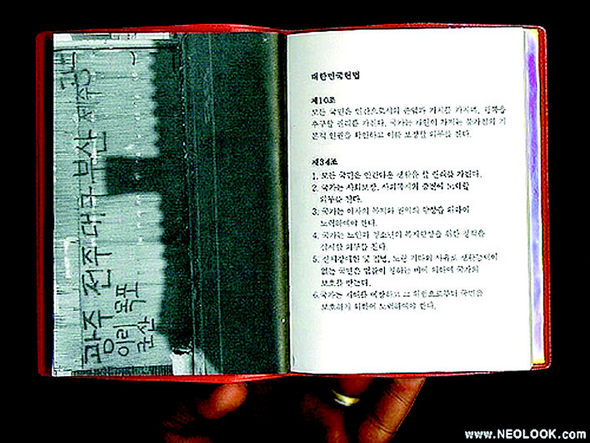 광주 전주 대구 부산 제주
이리 목포
군산
대한민국헌법
제10조
모든 국민은 인간으로서의 존엄과 가치를 가지며, 행복을
추구할 권리를 가진다. 국가는 개인이 가지는 불가침의 기
본적 인권을 확인하고 이를 보장할 의무를 진다.
제34조
1. 모든 국민은 인간다운 생활을 할 권리를 가진다.
2. 국가는 사회보장, 사회복지의 증진에 노력할
의무를 진다.
3. 국가는 여자의 복지와 권익의 향상을 위하여
노력하여야 한다.
4. 국가는 노인과 청소년의 복지향상을 위한 정책을
실시할 의무를 진다.
5. 신체장애자 및 질병, 노령 기타의 사유로 생활능력이
없는 국민은 법률이 정하는 바에 의하여 국가의
보호를 받는다.
6.국가는 재해를 예방하고 그 위험으로부터 국민을
보호하기 위하여 노력하여야 한다.
www.NEOLOOK.com